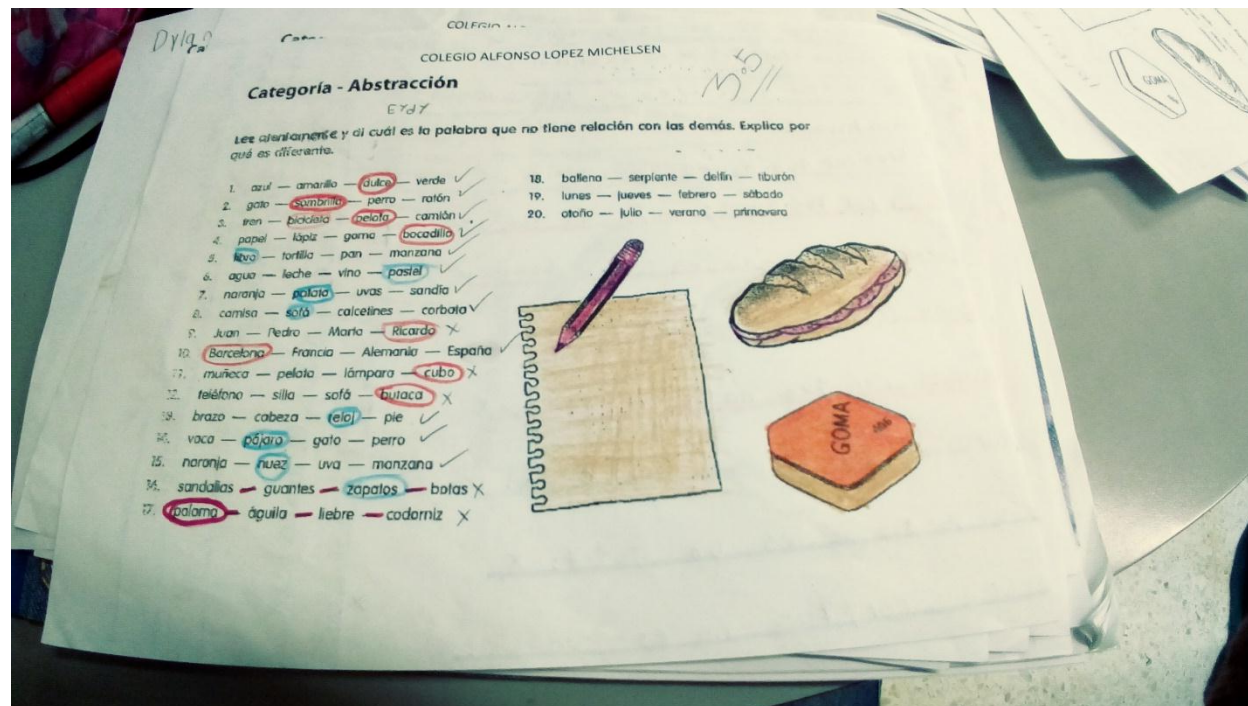 Dylan
COLEGIO
COLEGIO ALFONSO LOPEZ MICHELSEN
3.5//
Categoría - Abstracción
Lee atentamente y di cuál es la palabra que no tiene relación con las demás. Explica por
qué es diferente.
1. azul — amarillo — dulce — verde
2. gato — sombrilla — perro — ratón
3. tren — bicicleta — pelota — camión
4. papel — lápiz — goma — bocadillo
5. libro — tortilla — pan — manzana
6. agua — leche — vino — pastel
7. naranja — patata — uvas — sandía
8. camisa — sofá — calcetines — corbata
9. Juan — Pedro — María — Ricardo
10. Barcelona — Francia — Alemania — España
11. muñeca — pelota — lámpara — cubo
12. teléfono — silla — sofá — butaca
13. brazo — cabeza — reloj — pie
14. vaca — pájaro — gato — perro
15. naranja — nuez — uva — manzana
16. sandalias — guantes — zapatos — botas
17. paloma — águila — liebre — codorniz
18. ballena — serpiente — delfín — tiburón
19. lunes — jueves — febrero — sábado
20. otoño — julio — verano — primavera
GOMA
GOMA